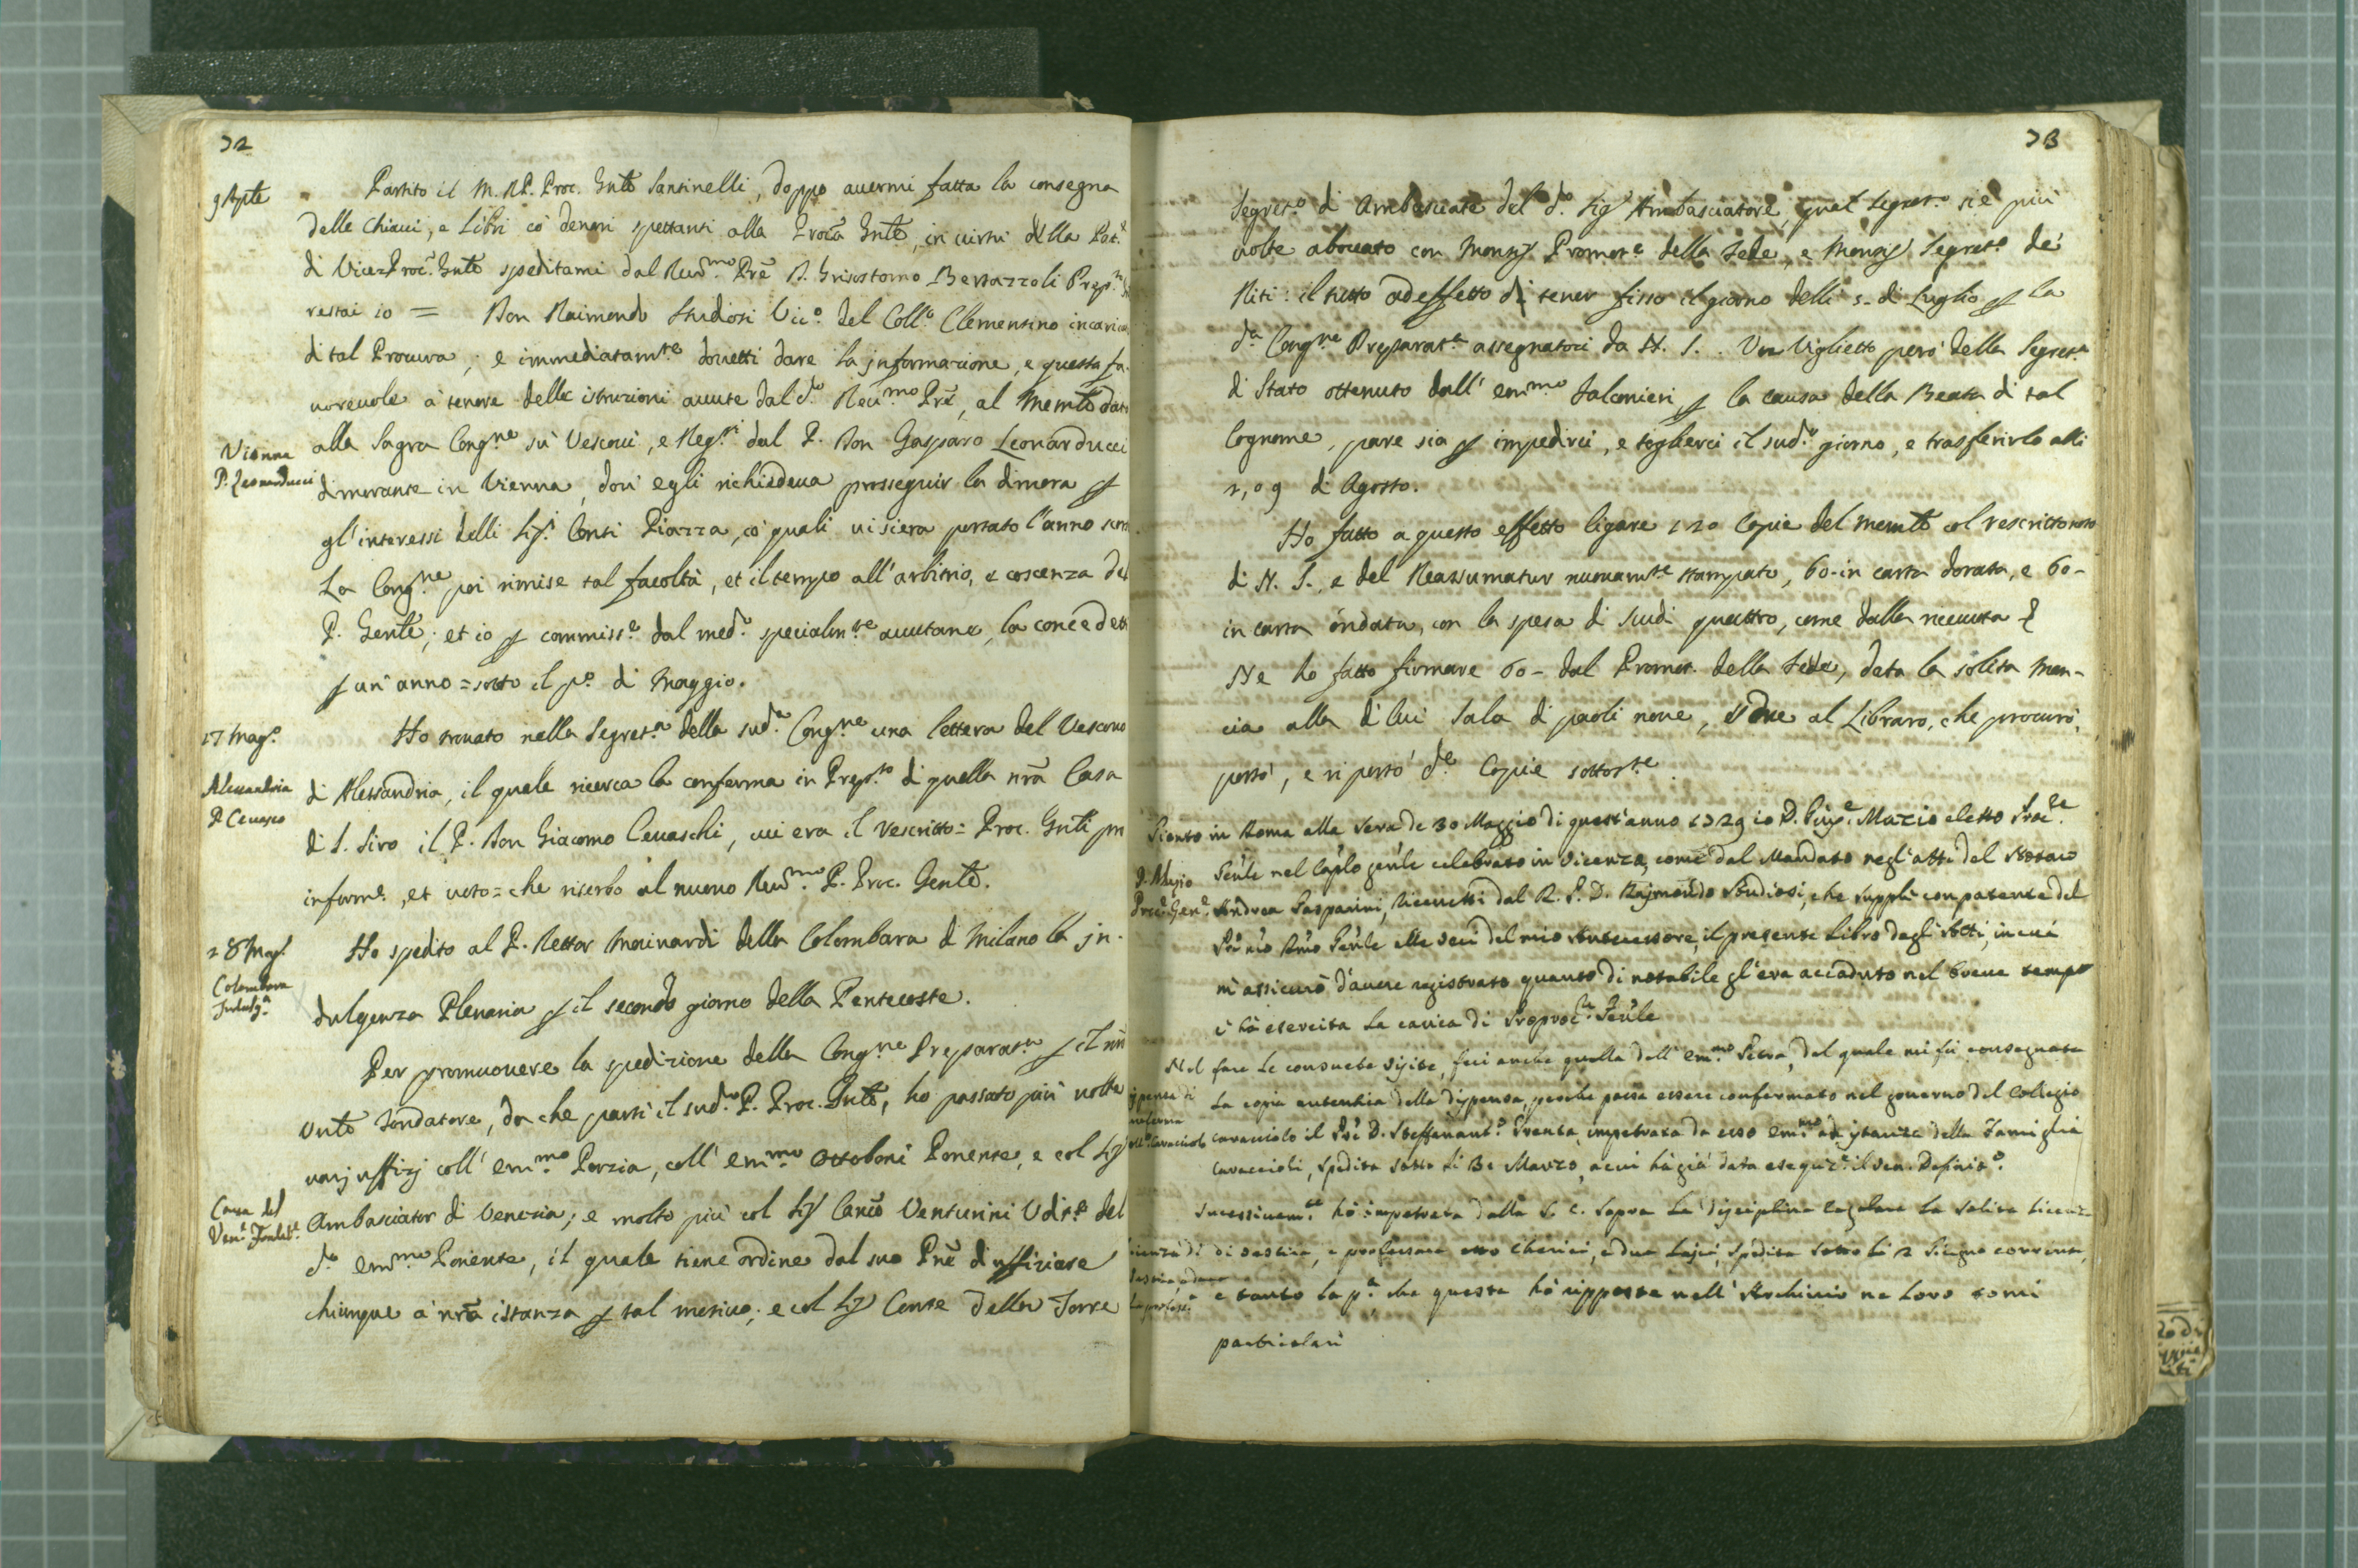 32
9 Aple
Partito il M. R. P. Proc. Gnle Santinelli, doppo auermi fatta la consegna
delle chiaui, e Libri co' denari spettanti alla Procã Gnle, in uirtù della Pat.
di Vice Proc. Gnle speditami dal Reu.mo Prẽ D. Grisostomo Bertazzoli Prep.
restai io = Don Raimondo Studiosi Vic.o del Coll.o Clementino incarica
di tal Procura; e immediatam.te douetti dare la jnformazione, e questa fa-
uoreuole a' tenore delle istruzioni auute dal d.o Reu.mo Prẽ, al Memle dato
alla Sagra Cong.ne su' Vescoui, e Reg.ri dal P. Don Gasparo Leonarducci
Vienna
P. Leonarducci
dimorante in Vienna, dou' egli richiedeua prosseguir la dimora p
gl'interessi delli Sig.ri Conti Piazza, co' quali ui siera portato l'anno
La Cong.ne poi rimise tal facoltà, et il tempo all'arbitrio, e coscenza del
P. Genle; et io p commiss.e dal med.o specialm.te auutane, la concedetti
p un' anno = sotto il p.o di Maggio.
17 Mag.o
Ho trouato nella Segret.a della sud.a Cong.ne una lettera del Vescouo
Alessandria
P. Ceuasco
di Alessandria, il quale ricerca la conferma in Prep.to di quella nrã Casa
di S. Siro il P. Don Giacomo Ceuaschi, cui era il rescritto = Proc. Gnli pro
inform.e, et uoto = che riserbo al nuouo Reu.mo P. Proc. Genle.
28 Mag.
Colombara
Indulg.a
Ho spedito al P. Rettor Mainardi della Colombara di Milano la jn-
dulgenza Plenaria p il secondo giorno della Pentecoste.
Per promuouere la spedizione della Cong.ne Preparat.a p il nrõ
Vnle Fondatore, da che parti il sud.o P. Proc. Gnle, ho passato più uolte
uarj uffizj coll' em.mo Porzia, coll' em.mo Ottoboni Ponente, e col Sig
Causa del
Ven.
Ambasciator di Venezia; e molto più col Sig Canco Venturini Udit.e del
d.o em.mo Ponente, il quale tiene ordine dal suo Prñe d'uffiziare
chiunque a' nrã istanza p tal motiuo; e col Sig Conte della Torre
33
Segret.o di Ambasciata del d.o Sig Ambasciatore, qual Segret.o si è più
uolte abocato con Monsig Promot.e della Fede, e Monsig Segret.o de'
Riti: il tutto ad effetto di tener fisso il giorno delli 5- di Luglio p la
d.a Cong.ne Preparat.a assegnatoci da N. S. Un Viglietto però della Segret.a
di Stato ottenuto dall' em.mo Falconieri, p la causa della Beata di tal
Cognome, pare sia p impedirci, e toglierci il sud.o giorno, e trasferirlo alli
2, o 9 di Agosto.
Ho fatto a questo effetto ligare 120 Copie del Memle col rescritto
di N. S., e del Reassumatur nuouam.te stampato, 60-in carta dorata, e 60-
in carta ondata, con la spesa di scudi quattro, come dalla riceuuta
Ne ho fatto firmare 60- dal Promot. della Fede, data la solita man-
cia alla di lui Sala di paoli noue, e due al Libraro, che procurò,
portò, e riportò d.e Copie sottos.te.
Gionto in Roma alla sera de 30 Maggio di quest'anno 1729 io D. Gius.e Mazio eletto Proc.e
P. Mazio
Proc. Gen.e
Genle nel Caplo genle celebrato in Vicenza, come dal Mandato negl'atti del Notaio
Andrea Gasparini, Riceuetti dal R. P. D. Rajmondo Studiosi, che supplì con patente del
Prẽ nrõ Rmo Genle alle veci del mio Antecessore, il presente Libro degl'Atti, in cui
m'assicurò d'auere registrato quanto di notabile gl'era accaduto nel breue tempo
c'hà esercita la carica di Proproc.re Genle
Nel fare le consuete visite, feci anche quella dell' em.mo Petra, dal quale mi fù consegnata
la copia autentica della dispensa, perche possa essere confermato nel gouerno del Collegio
Caracciolo il Prẽ D. Steffanant.o Trenta, impetrata da esso em.mo ad jstanza della Famiglia
Caraccioli, spedita sotto li 31 Marzo, a cui hà già data esequiz.e il Ven. Definit.o.
Sucessiuam.te hò impetrata dalla S. C. sopra la disciplina regolare la solita licenza
di uestire, e professare otto Cherici, e due Lajci, spedita sotto li 2 Giugno corrente,
e tanto la p.a, che questa hò ripposta nell' Archiuio ne loro tomi
particolari